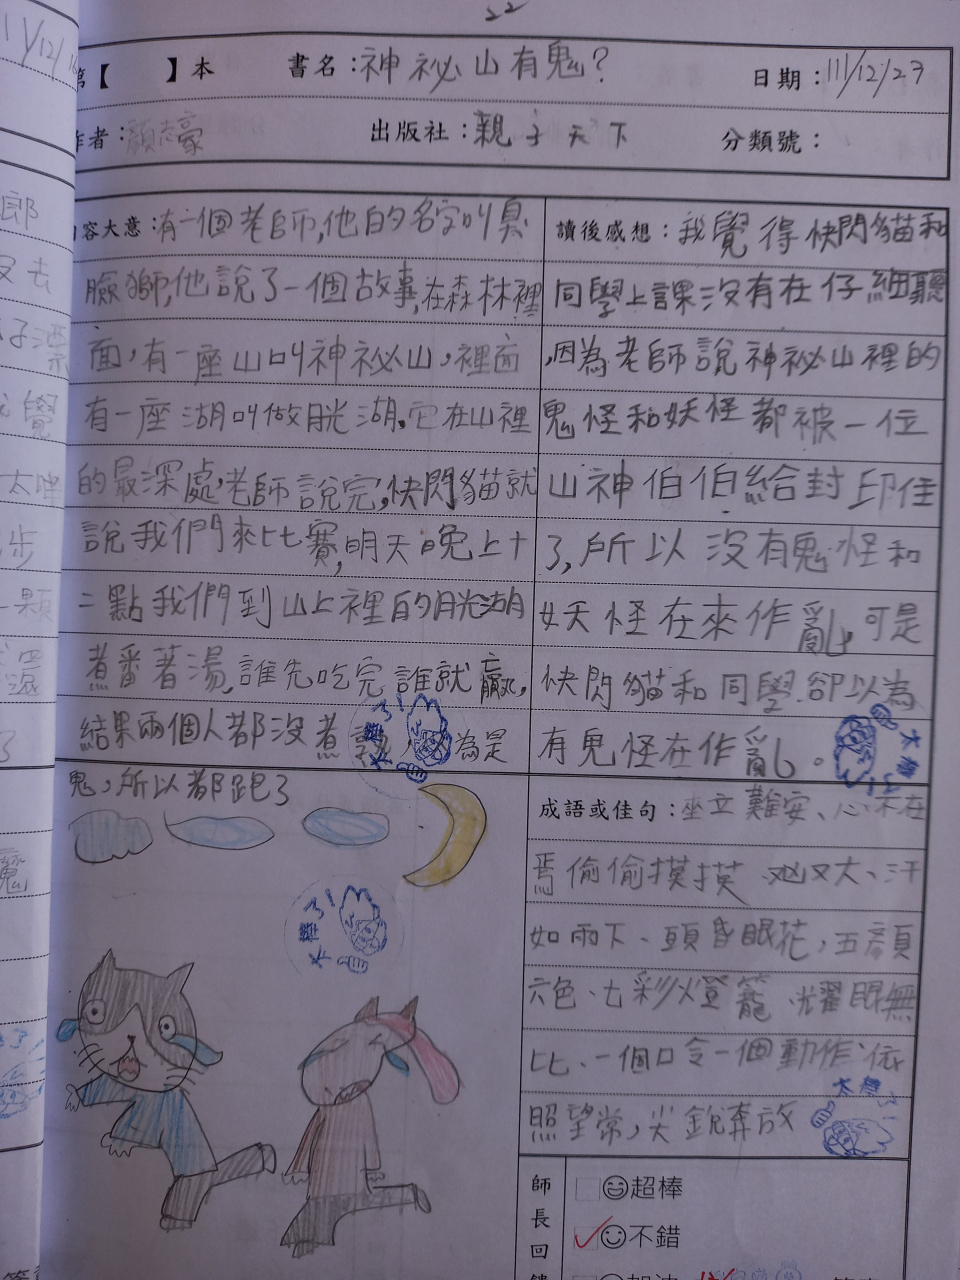 第【 】本 書名：神祕山有鬼？ 日期：111/12/27
作者：顏志豪 出版社：親子天下 分類號：
內容大意：有一個老師,他的名字叫臭
臉獅,他說了一個故事,在森林裡
面，有一座山叫神祕山，裡面
有一座湖叫做月光湖,它在山裡
的最深處,老師說完,快閃貓就
說我們來比賽,明天晚上十
二點我們到山上裡的月光湖
煮番薯湯,誰先吃完誰就贏,
結果兩個人都沒煮 為是
鬼，所以都跑了
讀後感想：我覺得快閃貓和
同學上課沒有在仔細聽
,因為老師說神祕山裡的
鬼怪和妖怪都被一位
山神伯伯給封印住
了,所以沒有鬼怪和
妖怪在來作亂,可是
快閃貓和同學.卻以為
有鬼怪在作亂。
太棒了！
太棒了！
太棒了！
成語或佳句：坐立難安、心不在
焉偷偷摸摸、又大、汗
如雨下、頭昏眼花，五顏
六色、七彩燈籠、無
比、一個口令一個動作、依
照望常，尖銳奔放
太棒了！
師長回饋
超棒
不錯